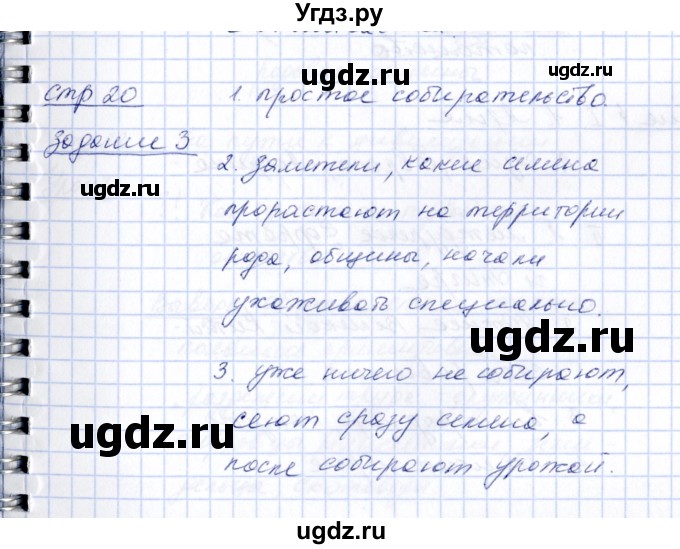 Угдз.ру
ugdz.ru ugdz.ru
стр 20 1. простое собирательство.
ugdz.ru
задание 3
2. Заметели, какие семена
ugdz.ru
прорастают на территории
ugdz.ru
рода, общины, начали
ухаживать специально.
ugdz.ru
3. уже ничего не собирают,
ugdz.ru ugdz.ru
сеют сразу семена, а
после собирают урожай.
ugdz.ru